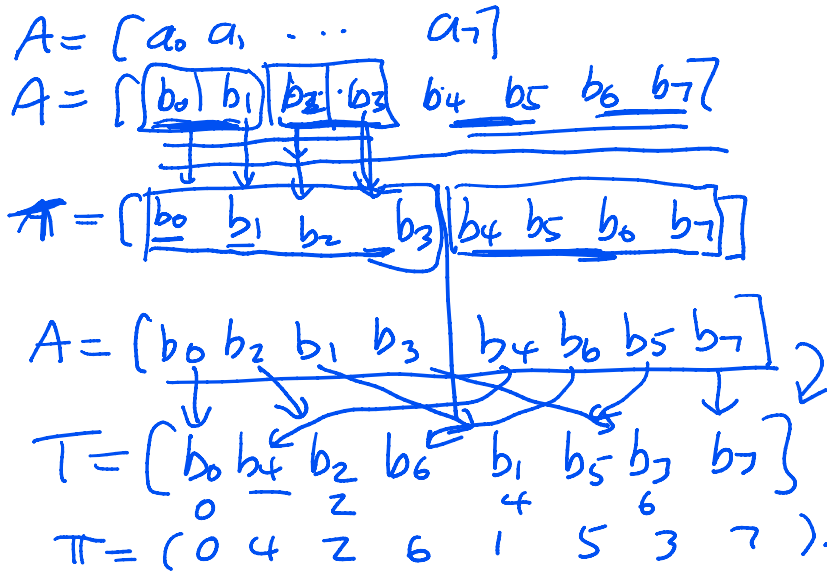 A = [a₀ a₁ ... a₇]
A = [b₀ b₁ b₂ b₃ b₄ b₅ b₆ b₇]
= [b₀ b₁ b₂ b₃ b₄ b₅ b₆ b₇]
A = [b₀ b₂ b₁ b₃ b₄ b₆ b₅ b₇]
T = [b₀ b₄ b₂ b₆ b₁ b₅ b₃ b₇]
0 2 4 6
π = (0 4 2 6 1 5 3 7).